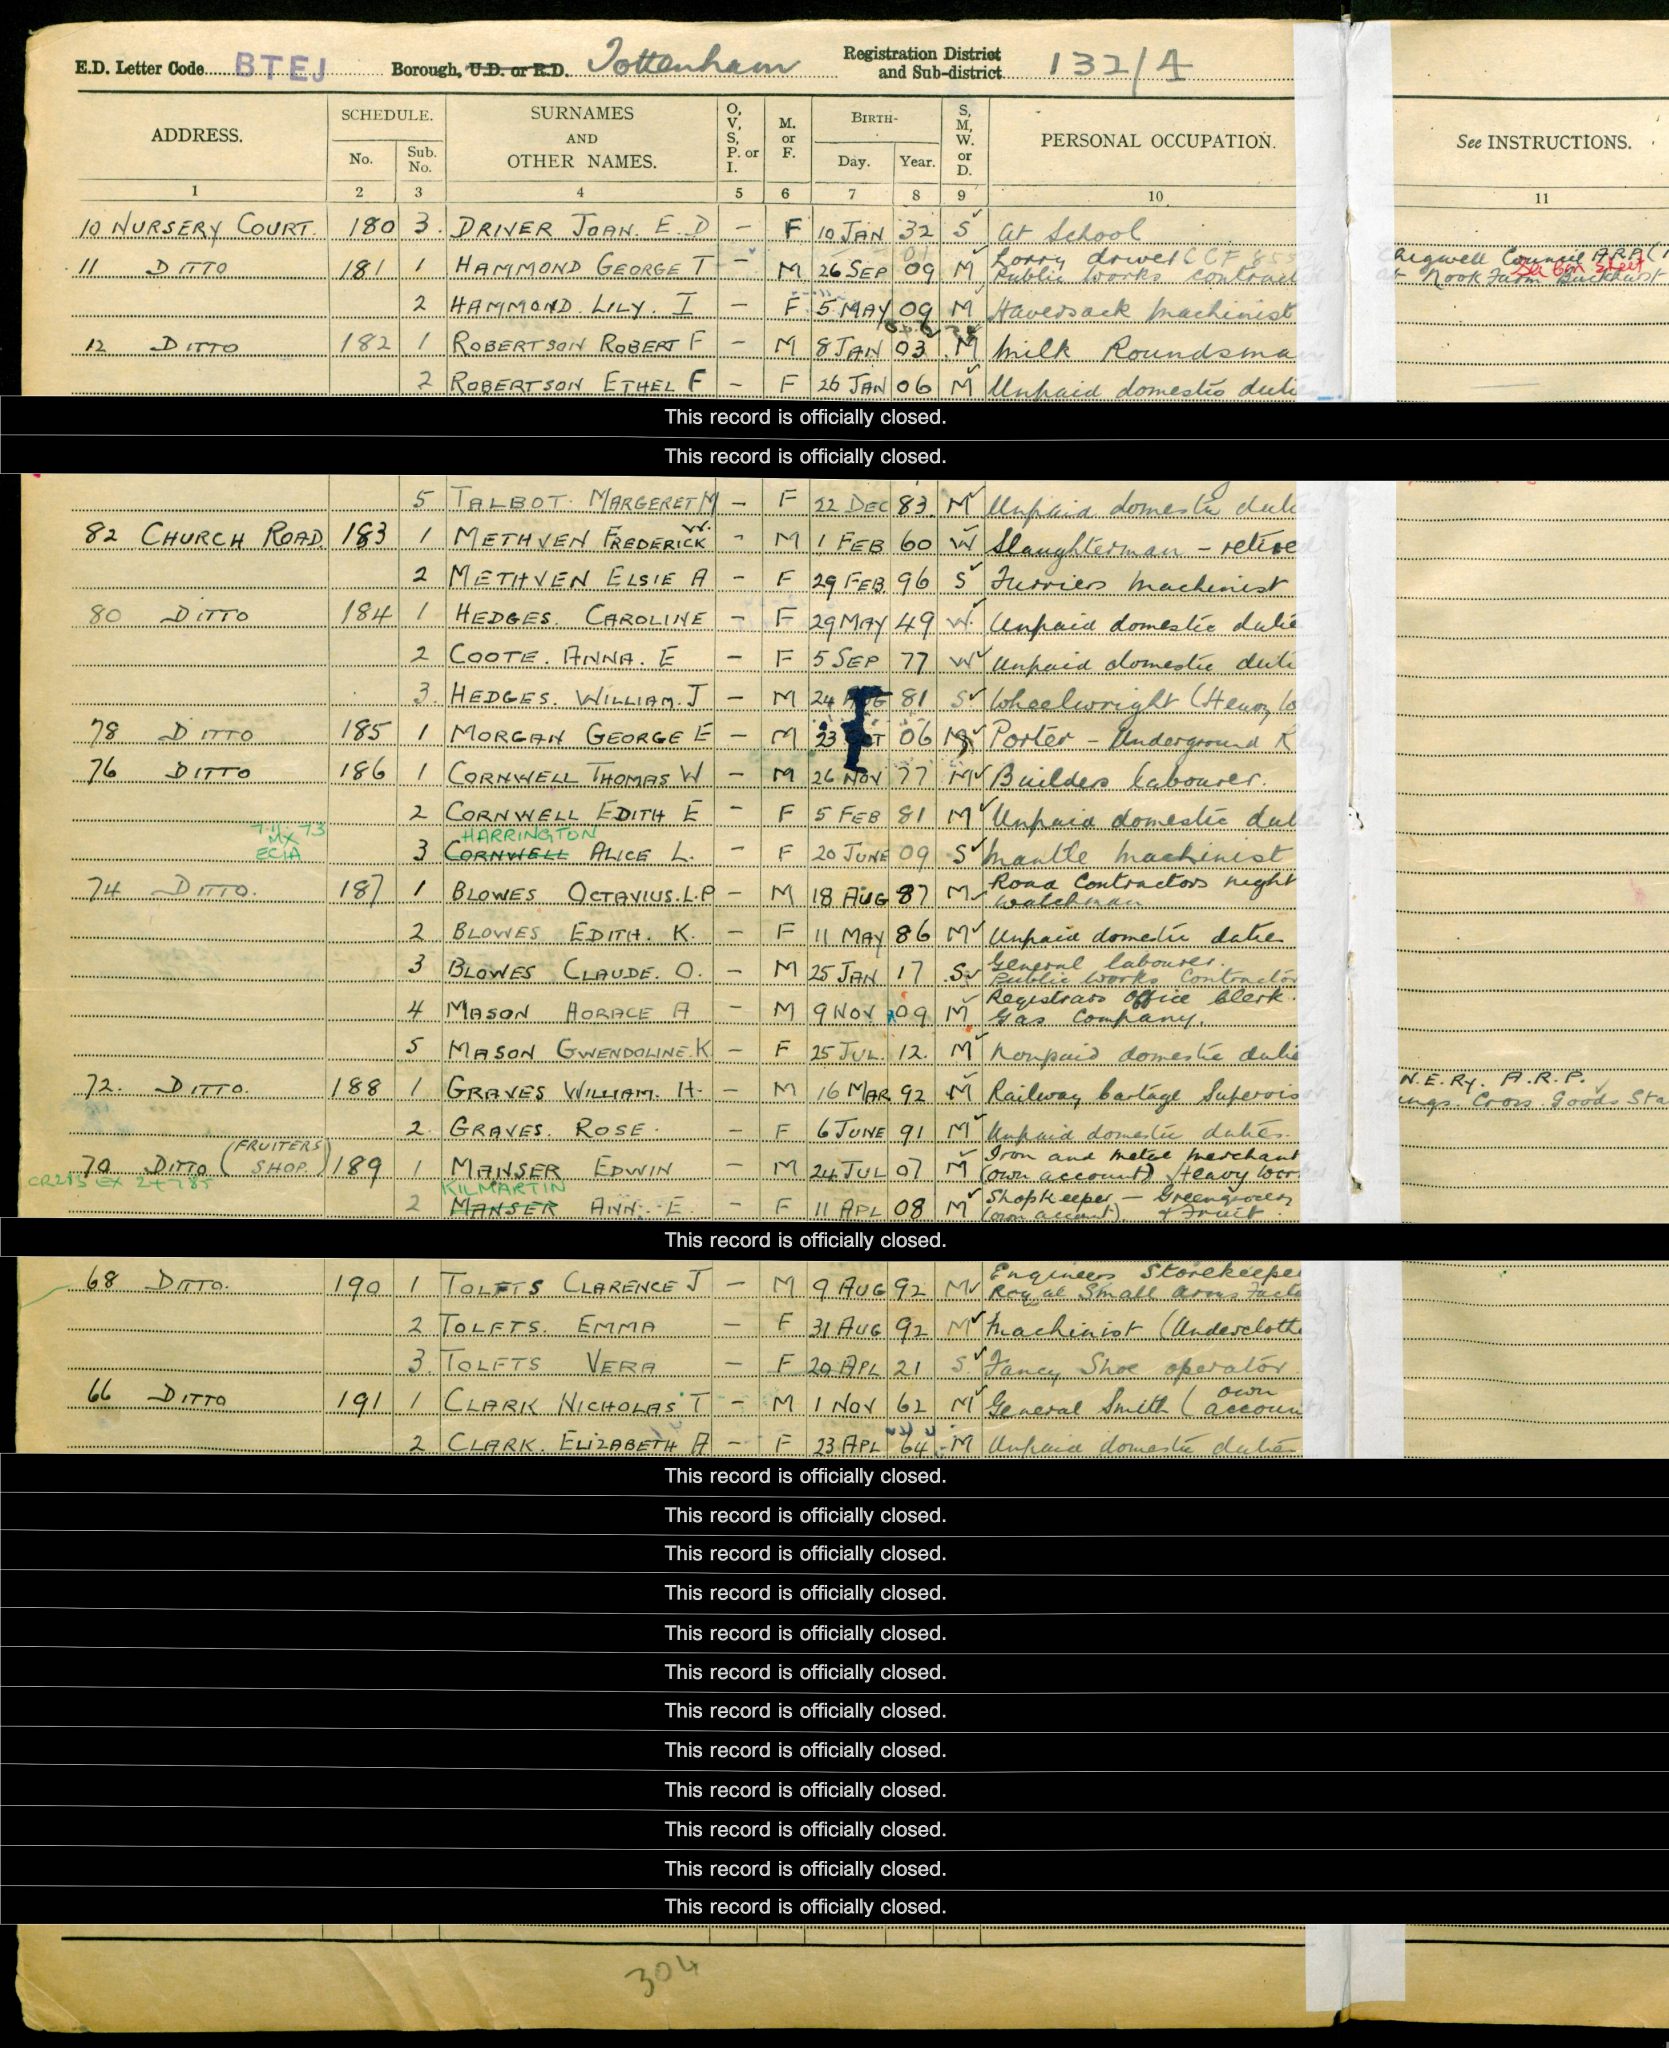 E.D. Letter Code BTEJ Borough, U.D. or R.D. Tottenham Registration District and Sub-district 132/A
ADDRESS. SCHEDULE. No. Sub. No. SURNAMES AND OTHER NAMES. O, V, S, P. or I. M. or F. BIRTH- Day. Year. S, M, W. or D. PERSONAL OCCUPATION. See INSTRUCTIONS.
1 2 3 4 5 6 7 8 9 10 11
10 NURSERY COURT. 180 3. DRIVER JOAN. E. D - F 10 JAN 32 S At School
11 DITTO 181 1 HAMMOND GEORGE T - M 26 SEP 09 M Lorry driver CCF 855 Public Works Contract Chigwell Council A.R.P. at Nook Farm Buckhurst
2 HAMMOND. LILY. I - F 5 MAY 09 M Haversack Machinist
12 DITTO 182 1 ROBERTSON ROBERT F - M 8 JAN 03 M Milk Roundsma
2 ROBERTSON ETHEL F - F 26 JAN 06 M Unpaid domestic duti
This record is officially closed.
This record is officially closed.
5 TALBOT. MARGERET M - F 22 DEC 83. M Unpaid domestic dutie
82 CHURCH ROAD. 183 1 METHVEN FREDERICK W. - M 1 FEB 60 W Slaughterman - retired
2 METHVEN ELSIE A - F 29 FEB. 96 S Furriers Machinist
80 DITTO 184 1 HEDGES. CAROLINE - F 29 MAY 49 W. Unpaid domestic dutie
2 COOTE. ANNA. E - F 5 SEP 77 W Unpaid domestic duti
3. HEDGES. WILLIAM. J - M 24 AUG 81 S Wheelwright (Heavy
78 DITTO 185 1 MORGAN GEORGE E - M 23 06 M Porter - Underground R
76 DITTO 186 1 CORNWELL THOMAS W - M 26 NOV 77 M Builders labourer.
2 CORNWELL EDITH E - F 5 FEB 81 M Unpaid domestic duti
7.11.73 MX ECIA HARRINGTON
3 CORNWELL ALICE L. - F 20 JUNE 09 S Mantle Machinist
74 DITTO. 187 1 BLOWES OCTAVIUS. L. P - M 18 AUG 87 M Road Contractors night watchman
2 BLOWES EDITH. K. - F 11 MAY 86 M Unpaid domestic dutie
3 BLOWES CLAUDE. O. - M 25 JAN 17 S General labourer. Public Works Contractor
4 MASON HORACE A - M 9 NOV 09 M Registrars Office Clerk. Gas Company.
5 MASON GWENDOLINE. K - F 25 JUL. 12. M Unpaid domestic dutie
72. DITTO. 188 1 GRAVES WILLIAM. H. - M 16 MAR 92 M Railway Cartage Supervisor N.E. Ry. A.R.P. Kings Cross. Goods Sta
2. GRAVES. ROSE. - F 6 JUNE 91 M Unpaid domestic duties.
70 DITTO (FRUITERS SHOP.) 189 1 MANSER EDWIN - M 24 JUL 07 M Iron and Metal Merchant (own account) Heavy Work
CR285 EX 24785 KILMARTIN
2 MANSER ANN. E. - F 11 APL 08 M Shopkeeper - Greengrocery & Fruit. (own account)
This record is officially closed.
68 DITTO. 190 1 TOLFTS CLARENCE J - M 9 AUG 92 M Engineers Storekeepe Royal Small Arms Facto
2 TOLFTS. EMMA - F 31 AUG 92 M Machinist (Underclothi
3. TOLFTS VERA - F 20 APL 21 S. Fancy Shoe operator.
66 DITTO 191 1 CLARK NICHOLAS T - M 1 NOV 62 M General Smith (own account
2 CLARK. ELIZABETH A - F 23 APL 64 M Unpaid domestic duties
This record is officially closed.
This record is officially closed.
This record is officially closed.
This record is officially closed.
This record is officially closed.
This record is officially closed.
This record is officially closed.
This record is officially closed.
This record is officially closed.
This record is officially closed.
This record is officially closed.
This record is officially closed.
304